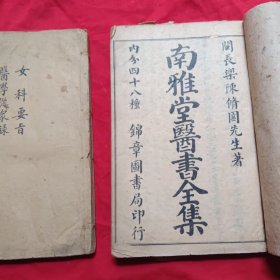 閩長樂陳脩園先生著
南雅堂醫書全集
內分四十八種
錦章圖書局印行
女科要旨
醫學從衆錄